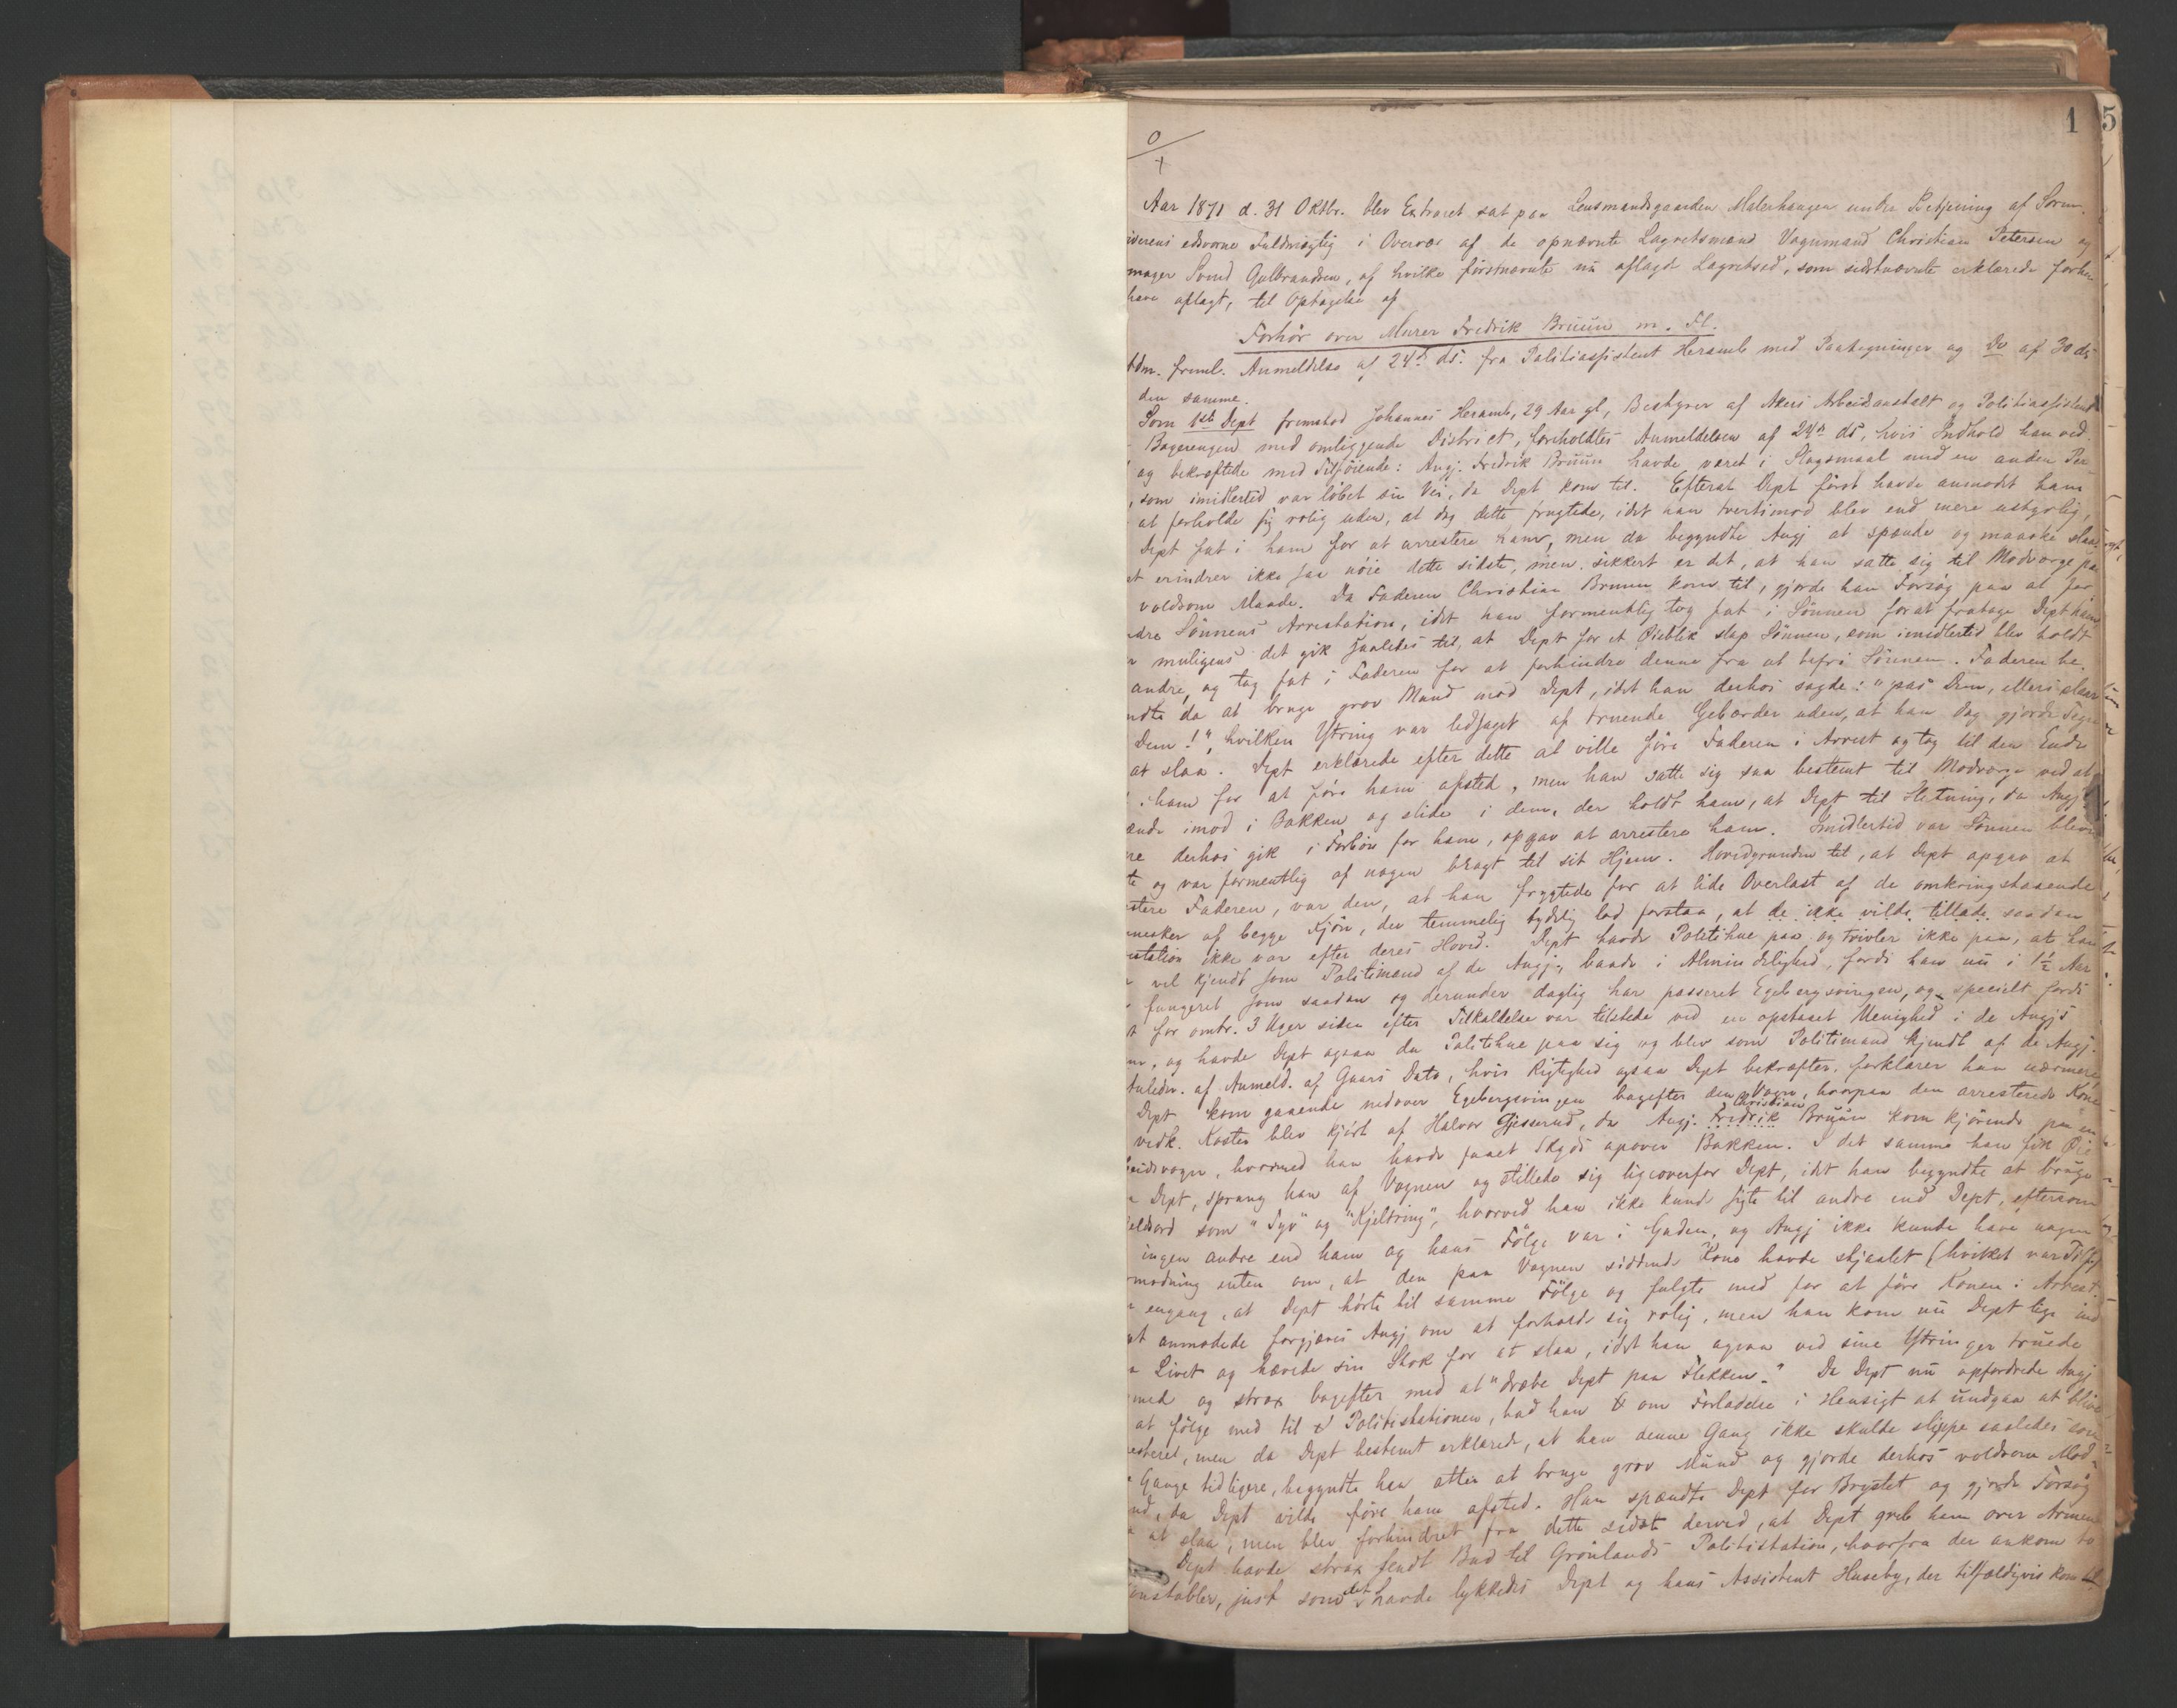 1 5
0
+
Aar 1871 d. 31 Oktbr. blev Extraret sat paa Lensmandsgaarden Malerhaugen under Betjening af Soren-
iverens edsvorne Fuldmægtig i Overvær af de opnævnte Lagretsmænd Vognmand Christian Petersen og
mager Svend Gulbrandsen, af hvilke førstnævnte nu aflagde Lagretsed, som sidstnævnte erklærede forhen
have aflagt, til Optagelse af
Forhör over Murer Fredrik Bruun m. Fl.
Adm. freml. Anmeldelse af 24de ds. fra Politiassistent Heramb med Paategninger og Do af 30 ds
den samme.
Som 1ste Dept fremstod Johannes Heramb, 29 Aar gl, Bestyrer af Akers Arbeidsanstalt og Politiassistent
Bagerengen med omliggende District, foreholdtes Anmeldelsen af 24de ds, hvis Indhold han ved-
og bekræftede med Tilföiende: Angj. Fredrik Bruun havde været i Slagsmaal med en anden Per-
, som imidlertid var löbet sin Vei, da Dept kom til. Efterat Dept först havde anmodet ham
at forholde sig rolig uden, at dog dette frugtede, idet han tvertimod blev end mere ustyrlig,
Dept fat i ham for at arrestere ham, men da begyndte Angj at spænde og maaske slaa.
t erindrer ikke saa nöie dette sidste, men sikkert er det, at han satte sig til Modværge paa
voldsom Maade. Da Faderen Christian Bruun kom til, gjorde han Forsög paa at for-
dre Sönnens Arrestation, idet han formentlig tog fat i Sönnen forat fratage Dept ham,
muligens det gik saaledes til, at Dept for et Öieblik slap Sönnen, som imidlertid blev holdt
andre, og tog fat i Faderen for at forhindre denne fra at befri Sönnen. Faderen be-
ndte da at bruge grov Mund mod Dept, idet han derhos sagde: "pas Dem, ellers slaar
Dem!", hvilken Ytring var ledsaget af truende Gebærder uden, at han dog gjorde Tegn
at slaa. Dept erklærede efter dette at ville före Faderen i Arrest og tog til den Ende
i ham for at före ham afsted, men han satte sig saa bestemt til Modværge ved at
ænde imod i Bakken og slide i dem, der holdt ham, at Dept til Slutning, da Angjs
re derhos gik i Forbön for ham, opgav at arrestere ham. Imidlertid var Sönnen bleven
te og var formentlig af nogen bragt til sit Hjem. Hovedgrunden til, at Dept opgav at
stere Faderen, var den, at han frygtede for at lide Overlast af de omkringstaaende
nnesker af begge Kjön, der temmelig tydelig lod forstaa, at de ikke vilde tillade saadan
estation ikke var efter deres Hoved. Dept havde Politihue paa og tvivler ikke paa, at han
vel kjendt som Politimand af de Angj., baade i Almindelighed, fordi han nu i 1½ Aar
fungeret som saadan og derunder daglig har passeret Egebergsvingen, og specielt fordi
t for omtr. 3 Uger siden efter Tilkaldelse var tilstede ved en opstaaet Uenighed i de Angjs
, og havde Dept ogsaa da Politihue paa sig og blev som Politimand kjendt af de Angj.
Anledn. af Anmeld. af Gaars Dato, hvis Rigtighed ogsaa Dept bekræfter, forklarer han nærmere
Dept kom gaaende nedover Egebergsvingen bagefter den Vogn, hvorpaa den arresterede Kone
Christian
vedk. Kosten blev kjört af Halvor Gjesserud, da Angj. Fredrik Bruun kom kjörende paa en
beidsvogn, hvormed han havde faaet Skyds opover Bakken. I det samme han fik Öie
Dept, sprang han af Vognen og stillede sig ligeoverfor Dept, idet han begyndte at bruge
eldsord som "Tyv" og "Kjeltring", hvorved han ikke kunde sigte til andre end Dept, eftersom
ingen andre end ham og hans Fölge var i Gaden, og Angj ikke kunde have nogen
modning enten om, at den paa Vognen siddende Kone havde stjaalet (hvilket var Tilf)
engang, at Dept hörte til samme Fölge og fulgte med for at före Konen i Arrest.
t anmodede forgjæves Angj om at forholde sig rolig, men han kom nu Dept lige ind
Livet og hævede sin Stok for at slaa, idet han ogsaa ved sine Ytringer truede
med og strax bagefter med at "dræbe Dept paa Flekken." Da Dept nu opfordrede Angj
at fölge med til Politistationen, bad han om Forladelse i Hensigt at undgaa at blive
esteret, men da Dept bestemt erklærede, at han denne Gang ikke skulde slippe saaledes som
Gange tidligere, begyndte han atter at bruge grov Mund og gjorde derhos voldsom Mod-
nd, da Dept vilde före ham afsted. Han spændte Dept for Brystet og gjorde Forsög
at slaa, men blev forhindret fra dette sidste derved, at Dept greb ham over Armene
Dept havde strax sendt Bud til Grönlands Politistation, hvorfra der ankom to
det
onstabler, just som havde lykkedes Dept og hans Assistent Huseby, der tilfældigvis kom til,